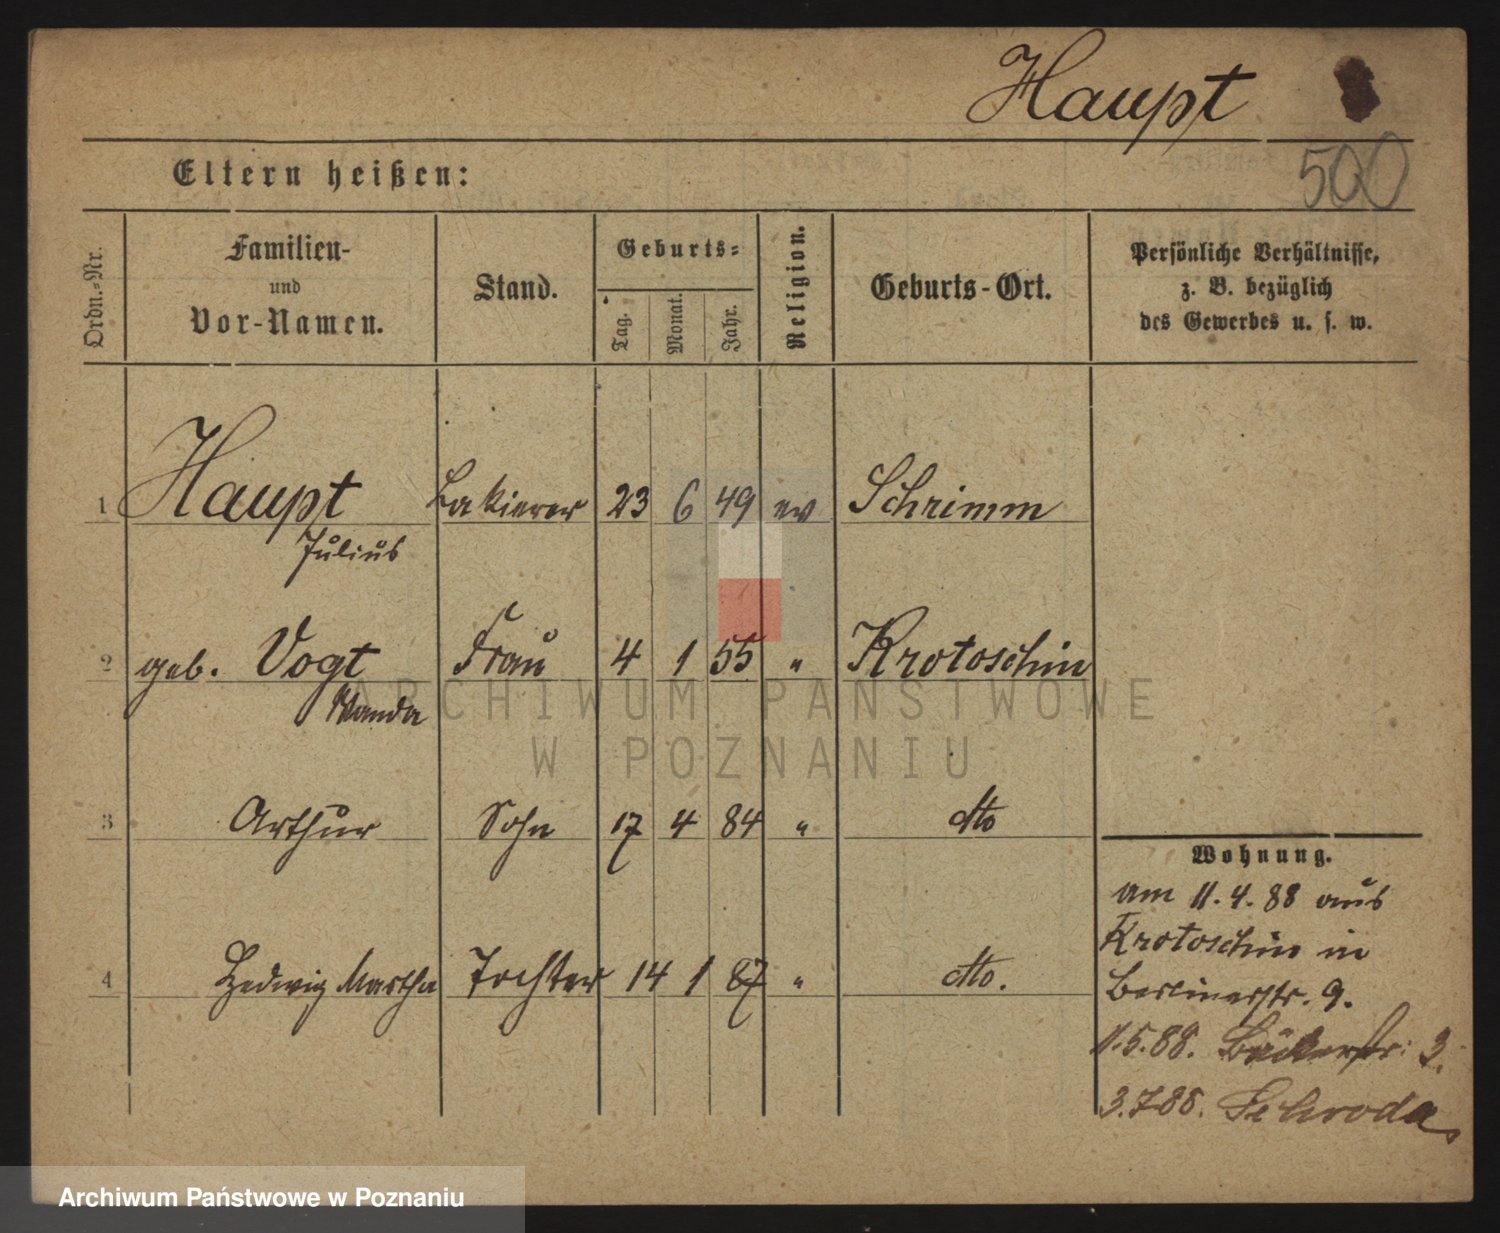 Haupt
500
Eltern heißen:
Ordn.-Nr.
Familien-
und
Vor-Namen.
Stand.
Geburts-
Tag.
Monat.
Jahr.
Religion.
Geburts-Ort.
Persönliche Verhältnisse,
z. B. bezüglich
des Gewerbes u. s. w.
1 Haupt Lakierer 23 6 49 ev Schrimm
Julius
2 geb. Vogt Frau 4 1 55 " Krotoschin
Wanda
3 Arthur Sohn 17 4 84 " dto
4 Hedwig Martha Tochter 14 1 87 " dto.
Wohnung.
am 11.4.88 aus
Krotoschin in
Berlinerstr. 9.
11.5.88. Bäckerstr: 3.
3.7.88. Schroda
ARCHIWUM PAŃSTWOWE
W POZNANIU
Archiwum Państwowe w Poznaniu